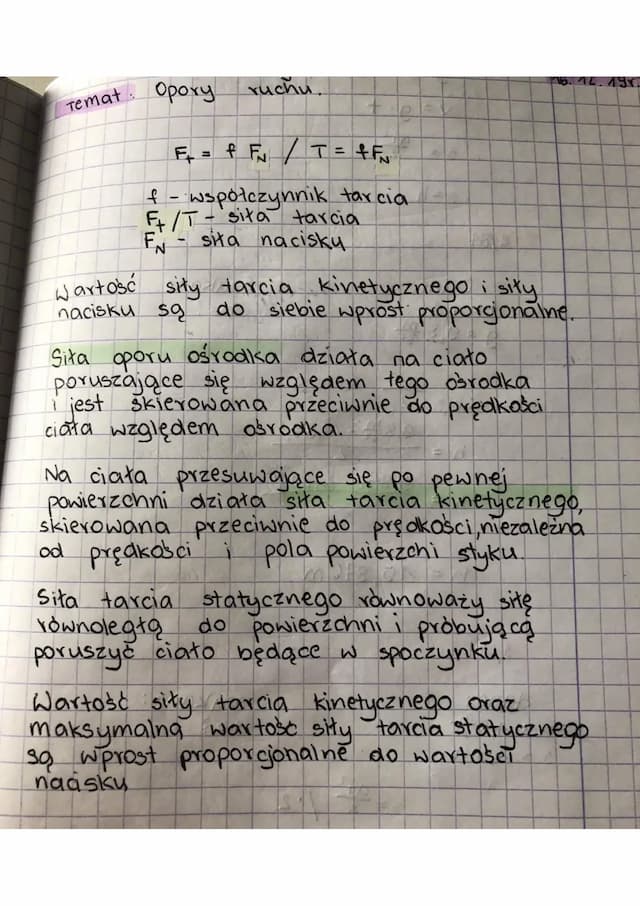 Temat: Opory ruchu.
F_t = f F_N / T = fF_N
f - współczynnik tarcia
F_t/T - siła tarcia
F_N - siła nacisku
Wartość siły tarcia kinetycznego i siły
nacisku są do siebie wprost proporcjonalne.
Siła oporu ośrodka działa na ciało
poruszające się względem tego ośrodka
i jest skierowana przeciwnie do prędkości
ciała względem ośrodka.
Na ciała przesuwające się po pewnej
powierzchni działa siła tarcia kinetycznego,
skierowana przeciwnie do prędkości, niezależna
od prędkości i pola powierzchi styku.
Siła tarcia statycznego równoważy siłę
równoległą do powierzchni i próbującą
poruszyć ciało będące w spoczynku.
Wartość siły tarcia kinetycznego oraz
maksymalna wartość siły tarcia statycznego
są wprost proporcjonalne do wartości
nacisku